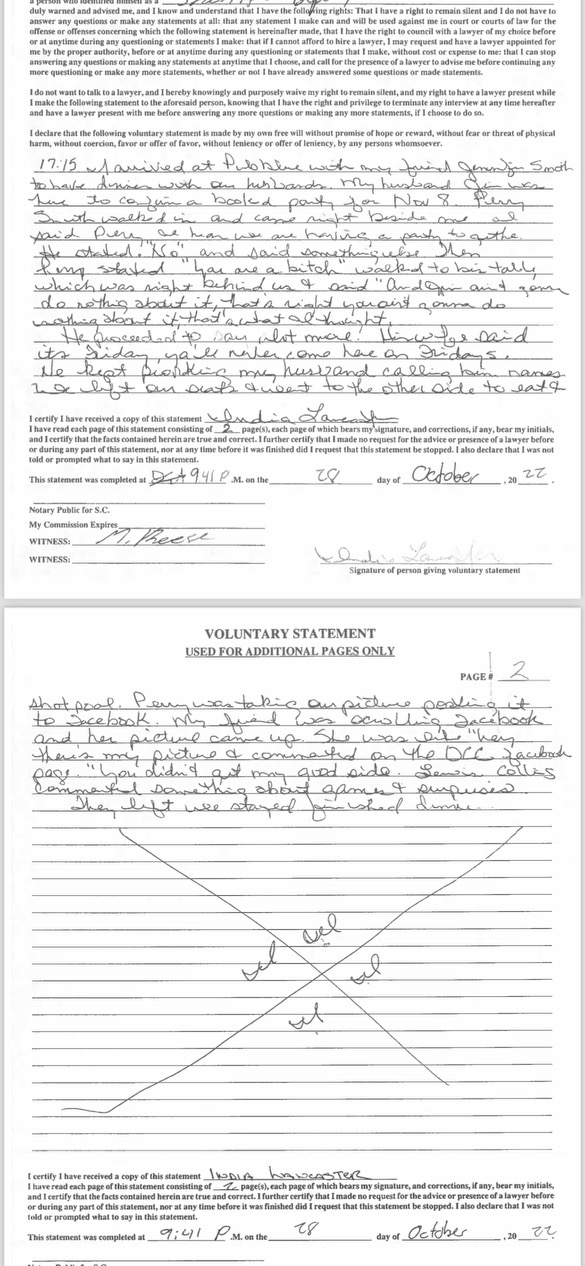 a person who identified himself as a
duly warned and advised me, and I know and understand that I have the following rights: That I have a right to remain silent and I do not have to
answer any questions or make any statements at all: that any statement I make can and will be used against me in court or courts of law for the
offense or offenses concerning which the following statement is hereinafter made, that I have the right to council with a lawyer of my choice before
or at anytime during any questioning or statements I make: that if I cannot afford to hire a lawyer, I may request and have a lawyer appointed for
me by the proper authority, before or at anytime during any questioning or statements that I make, without cost or expense to me: that I can stop
answering any questions or making any statements at anytime that I choose, and call for the presence of a lawyer to advise me before continuing any
more questioning or make any more statements, whether or not I have already answered some questions or made statements.
I do not want to talk to a lawyer, and I hereby knowingly and purposely waive my right to remain silent, and my right to have a lawyer present while
I make the following statement to the aforesaid person, knowing that I have the right and privilege to terminate any interview at any time hereafter
and have a lawyer present before answering any more questions or making any more statements, if I choose to do so.
I declare that the following voluntary statement is made by my own free will without promise of hope or reward, without fear or threat of physical
harm, without coercion, favor or offer of favor, without leniency or offer of leniency, by any persons whomsoever.
17:15 I arrived at Pub blue with my friend Jennifer Smith
to have dinner with our husbands. My husband Jim was
here to confirm a booked party for Nov 8. Perry
Smith walked in and came right beside me
said Perry, we are having a party together.
He stated "No" and said something else. Then
Perry stated "you are a bitch" walked to his table
which was right behind us & said "And Jim ain't gonna
do nothing about it, that's right you aint gonna do
nothing about it, that's what I thought.
He proceeded to say alot more! His wife said
its Friday, ya'll never come here on Fridays.
He kept provoking my husband calling him names
we left our seats & went to the other side to eat &
I certify I have received a copy of this statement India Lancaster
I have read each page of this statement consisting of 2 page(s), each page of which bears my signature, and corrections, if any, bear my initials,
and I certify that the facts contained herein are true and correct. I further certify that I made no request for the advice or presence of a lawyer before
or during any part of this statement, nor at any time before it was finished did I request that this statement be stopped. I also declare that I was not
told or prompted what to say in this statement.
This statement was completed at 9:41 P .M. on the 28 day of October , 20 22 .
Notary Public for S.C.
My Commission Expires
WITNESS: M. Preese
WITNESS:
India Lancaster
Signature of person giving voluntary statement
VOLUNTARY STATEMENT
USED FOR ADDITIONAL PAGES ONLY
PAGE # 2
shot pool. Perry was taking our picture posting it
to Facebook. My friend was scrolling Facebook
and her picture came up. She was like "hey
there's my picture & commented on the DCC facebook
page. "You didn't get my good side. Lewis
commented something about games & surprises
They left we stayed finished dinner.
I certify I have received a copy of this statement INDIA LANCASTER
I have read each page of this statement consisting of 2 page(s), each page of which bears my signature, and corrections, if any, bear my initials,
and I certify that the facts contained herein are true and correct. I further certify that I made no request for the advice or presence of a lawyer before
or during any part of this statement, nor at any time before it was finished did I request that this statement be stopped. I also declare that I was not
told or prompted what to say in this statement.
This statement was completed at 9:41 P .M. on the 28 day of October , 20 22.